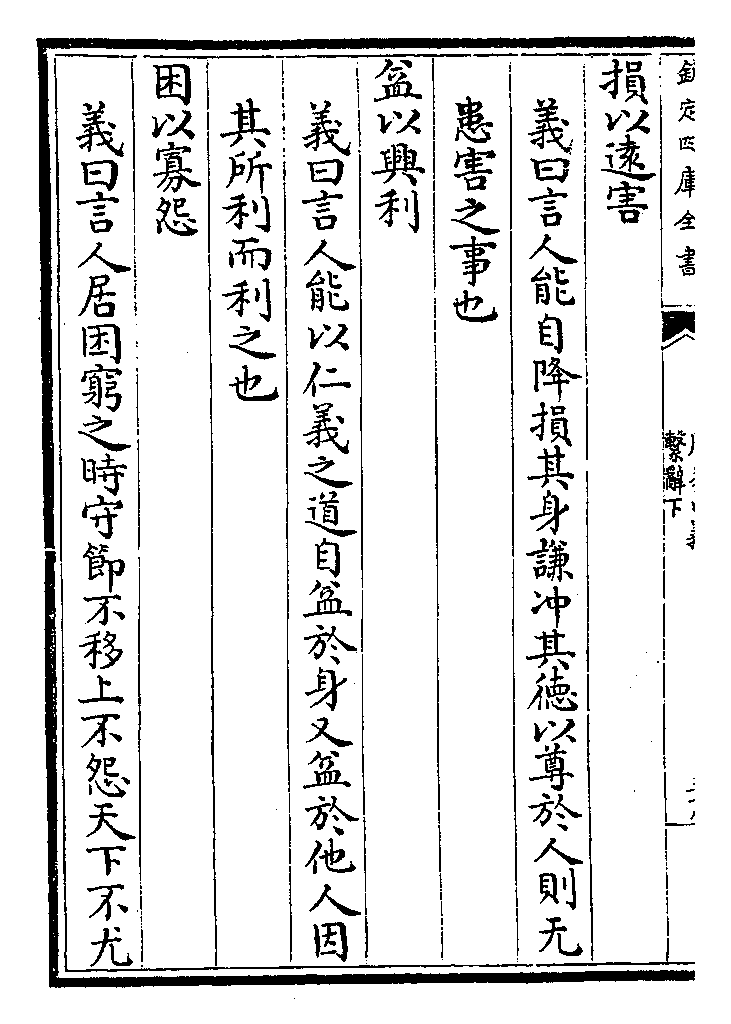 欽定四庫全書
繫辭下
損以遠害
義曰言人能自降損其身謙冲其德以尊於人則无
患害之事也
益以興利
義曰言人能以仁義之道自益於身又益於他人因
其所利而利之也
困以寡怨
義曰言人居困窮之時守節不移上不怨天下不尤